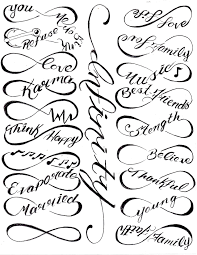 you Me
Refuse to
love
Karma
Think Happy
Evaporate
Married
Infinity
Self love
Family
Music
Best Friends
Strength
Believe
Thankful
young
Family